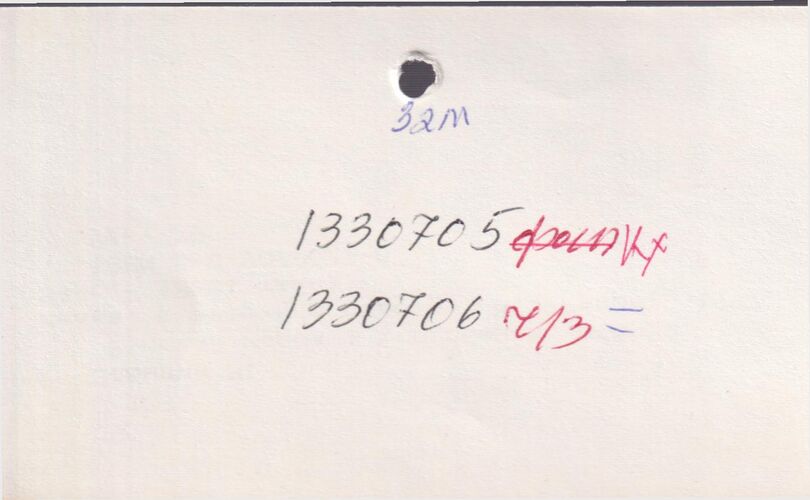 32м
1330705 Кх
1330706 ч/з =